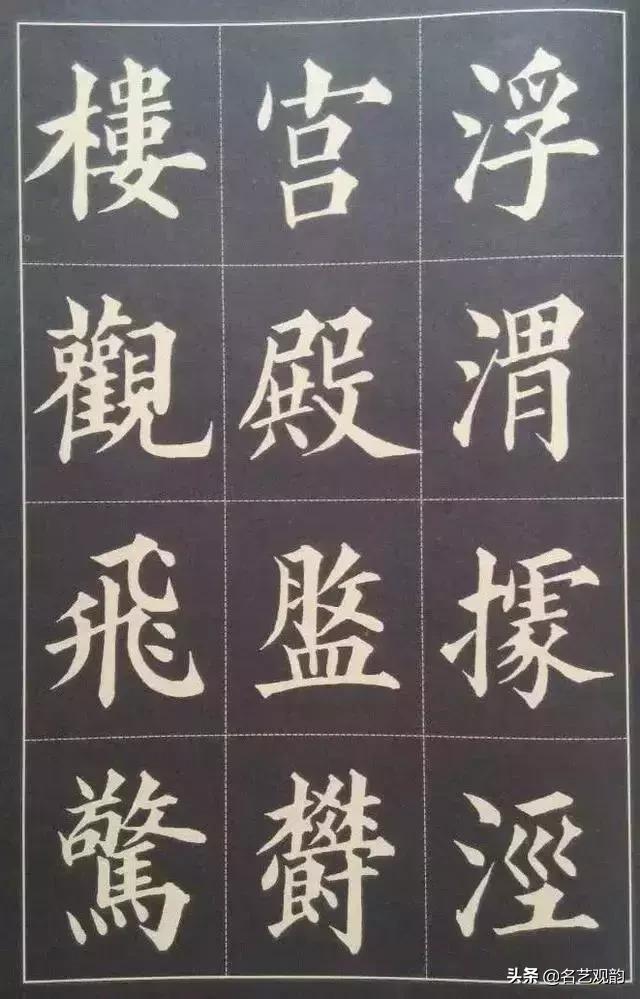 浮渭據涇
宫殿盤鬱
樓觀飛驚
头条 @名艺观韵